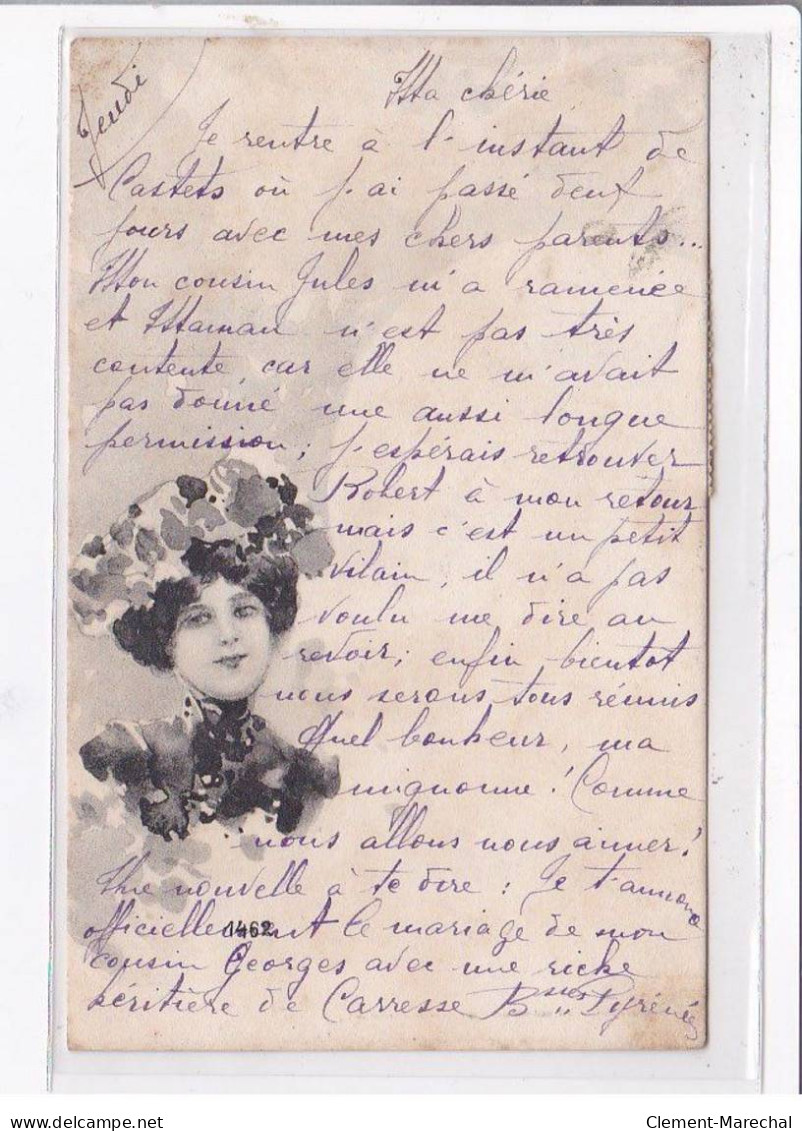 Jeudi
Ma chérie
Je rentre à l'instant de
Castets où j'ai passé deux
jours avec mes chers parents...
Mon cousin Jules m'a ramenée
et Maman n'est pas très
contente car elle ne m'avait
pas donné une aussi longue
permission; j'espérais retrouver
Robert à mon retour
mais c'est un petit
vilain, il n'a pas
voulu me dire au
revoir; enfin bientot
nous serons tous réunis
Quel bonheur, ma
mignonne! Comme
nous allons nous aimer!
Une nouvelle à te dire : Je t'annonce
officiellement le mariage de mon
1462
cousin Georges avec une riche
héritière de Carresse Bses Pyrénées
Clement-Marechal